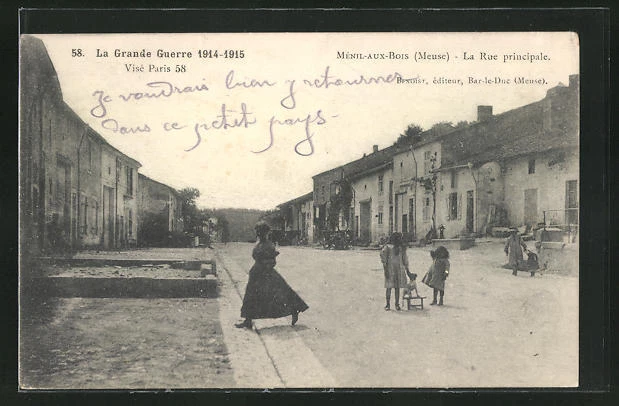 58. La Grande Guerre 1914-1915
Visé Paris 58
MÉNIL-AUX-BOIS (Meuse) - La Rue principale.
BENOIST, éditeur, Bar-le-Duc (Meuse).
Je voudrais bien y retourner
dans ce petit pays -